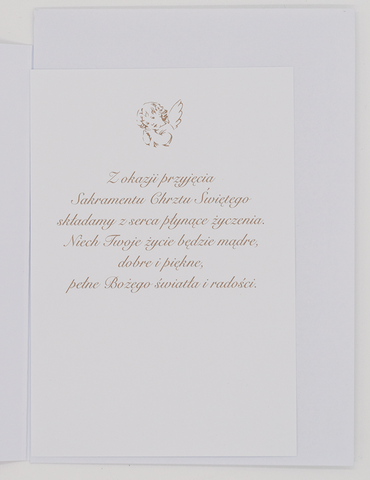 Z okazji przyjęcia
Sakramentu Chrztu Świętego
składamy z serca płynące życzenia.
Niech Twoje życie będzie mądre,
dobre i piękne,
pełne Bożego światła i radości.